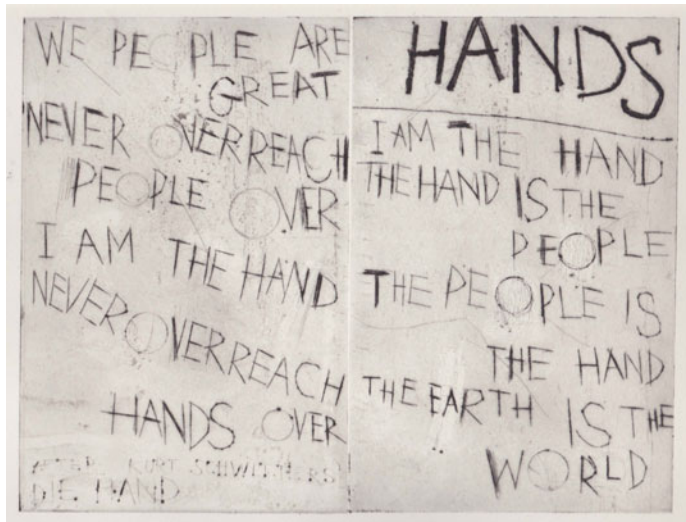 WE PEOPLE ARE
GREAT
NEVER OVERREACH
PEOPLE OVER
I AM THE HAND
NEVER OVERREACH
HANDS OVER
AFTER KURT SCHWITTERS
DIE HAND
HANDS
I AM THE HAND
THE HAND IS THE
PEOPLE
THE PEOPLE IS
THE HAND
THE EARTH IS THE
WORLD